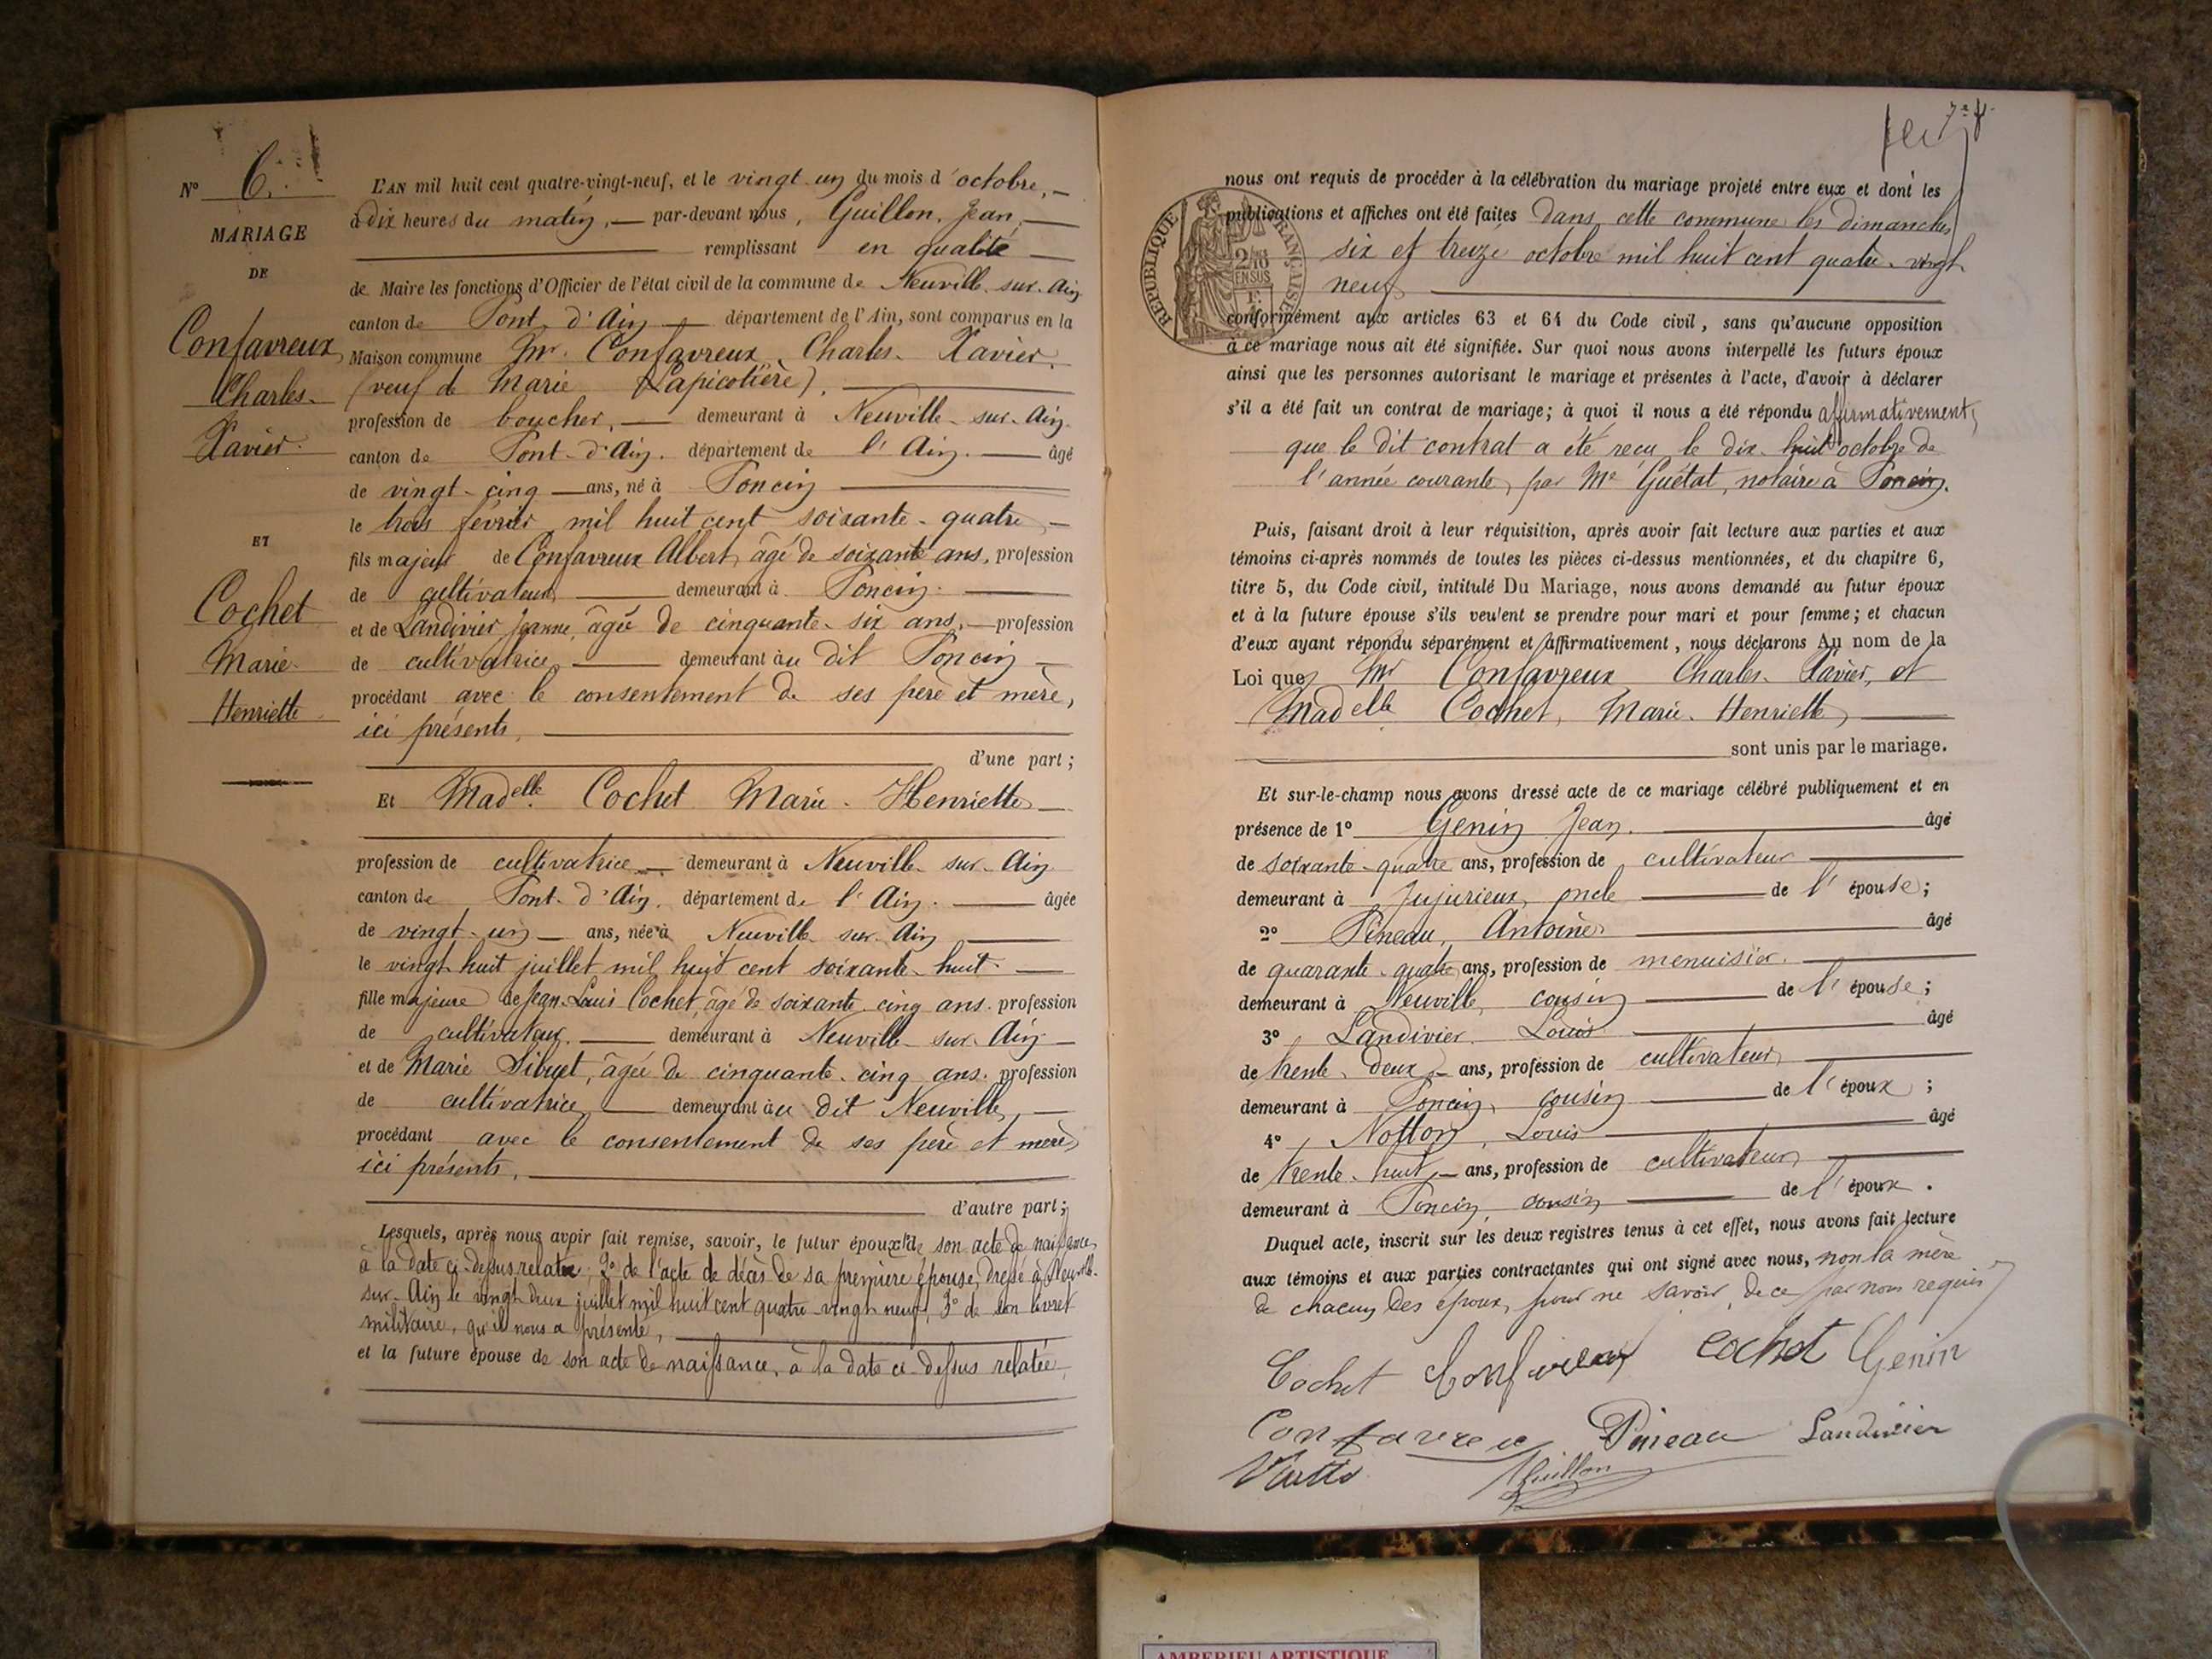 N° 6.
MARIAGE
DE
Confavreux
Charles-
Xavier.
ET
Cochet
Marie-
Henriette
L'AN mil huit cent quatre-vingt-neuf, et le vingt-un du mois d'octobre,
à dix heures du matin, par-devant nous, Guillon, Jean,
remplissant en qualité
de Maire les fonctions d'Officier de l'état civil de la commune de Neuville-sur-Ain
canton de Pont-d'Ain département de l'Ain, sont comparus en la
Maison commune Mr. Confavreux, Charles-Xavier,
(veuf de Marie Lapicotière),
profession de boucher, demeurant à Neuville-sur-Ain
canton de Pont-d'Ain. département de l'Ain. âgé
de vingt-cinq ans, né à Poncin
le trois février mil huit cent soixante-quatre,
fils majeur de Confavreux Albert, âgé de soixante ans, profession
de cultivateur, demeurant à Poncin.
et de Landivier Jeanne, âgée de cinquante-six ans, profession
de cultivatrice, demeurant au dit Poncin
procédant avec le consentement de ses père et mère,
ici présents,
d'une part;
Et Madelle. Cochet Marie-Henriette
profession de cultivatrice demeurant à Neuville-sur-Ain
canton de Pont-d'Ain. département de l'Ain. âgée
de vingt-un ans, née à Neuville-sur-Ain
le vingt-huit juillet mil huit cent soixante-huit.
fille majeure de Jean-Louis Cochet, âgé de soixante-cinq ans. profession
de cultivateur. demeurant à Neuville-sur-Ain
et de Marie Sibuet, âgée de cinquante-cinq ans. profession
de cultivatrice, demeurant au dit Neuville,
procédant avec le consentement de ses père et mère,
ici présents,
d'autre part;
Lesquels, après nous avoir fait remise, savoir, le futur époux 1° de son acte de naissance
à la date ci-dessus relatée; 2° de l'acte de décès de sa première épouse, dressé à Neuville-
sur-Ain le vingt-deux juillet mil huit cent quatre-vingt-neuf, 3° de son livret
militaire, qu'il nous a présenté,
et la future épouse de son acte de naissance, à la date ci-dessus relatée
nous ont requis de procéder à la célébration du mariage projeté entre eux et dont les
publications et affiches ont été faites dans cette commune les dimanches
six et treize octobre mil huit cent quatre-vingt
neuf
conformément aux articles 63 et 64 du Code civil, sans qu'aucune opposition
à ce mariage nous ait été signifiée. Sur quoi nous avons interpellé les futurs époux
ainsi que les personnes autorisant le mariage et présentes à l'acte, d'avoir à déclarer
s'il a été fait un contrat de mariage; à quoi il nous a été répondu affirmativement,
que le dit contrat a été reçu le dix-huit octobre de
l'année courante, par Me Guétat, notaire à Poncin.
Puis, faisant droit à leur réquisition, après avoir fait lecture aux parties et aux
témoins ci-après nommés de toutes les pièces ci-dessus mentionnées, et du chapitre 6,
titre 5, du Code civil, intitulé Du Mariage, nous avons demandé au futur époux
et à la future épouse s'ils veulent se prendre pour mari et pour femme; et chacun
d'eux ayant répondu séparément et affirmativement, nous déclarons Au nom de la
Loi que Mr Confavreux Charles-Xavier, et
Madelle Cochet, Marie-Henriette,
sont unis par le mariage.
Et sur-le-champ nous avons dressé acte de ce mariage célébré publiquement et en
présence de 1° Genin Jean. âgé
de soixante-quatre ans, profession de cultivateur
demeurant à Jujurieux, oncle de l'épouse;
2° Pineau, Antoine âgé
de quarante-quatre ans, profession de menuisier.
demeurant à Neuville, cousin de l'épouse;
3° Landivier Louis âgé
de trente-deux ans, profession de cultivateur,
demeurant à Poncin, cousin de l'époux;
4° Notton, Louis âgé
de trente-huit ans, profession de cultivateur,
demeurant à Poncin, cousin de l'époux.
Duquel acte, inscrit sur les deux registres tenus à cet effet, nous avons fait lecture
aux témoins et aux parties contractantes qui ont signé avec nous, non la mère
de chacun des époux, pour ne savoir, de ce par nous requis
Cochet Confavreux Cochet Genin
Confavreux Pineau Landivier
Guillon
RÉPUBLIQUE FRANÇAISE
2/10 EN SUS
AMBERIEU ARTISTIQUE